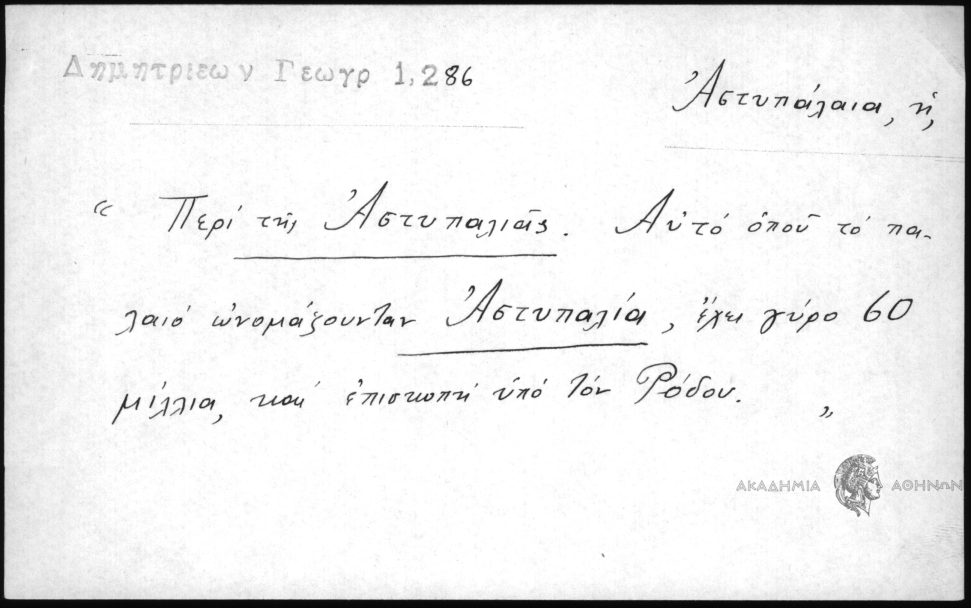 Δημητριεων Γεωγρ 1,286
Ἀστυπάλαια, ἡ,
“ Περί τῆς Ἀστυπαλιᾶς. Αὐτό ὁποῦ τό πα-
λαιό ὠνομάζουνταν Ἀστυπαλία, ἔχει γύρο 60
μίλλια, καί ἐπισκοπή ὑπό τόν Ρόδου. „
ΑΚΑΔΗΜΙΑ ΑΘΗΝΩΝ